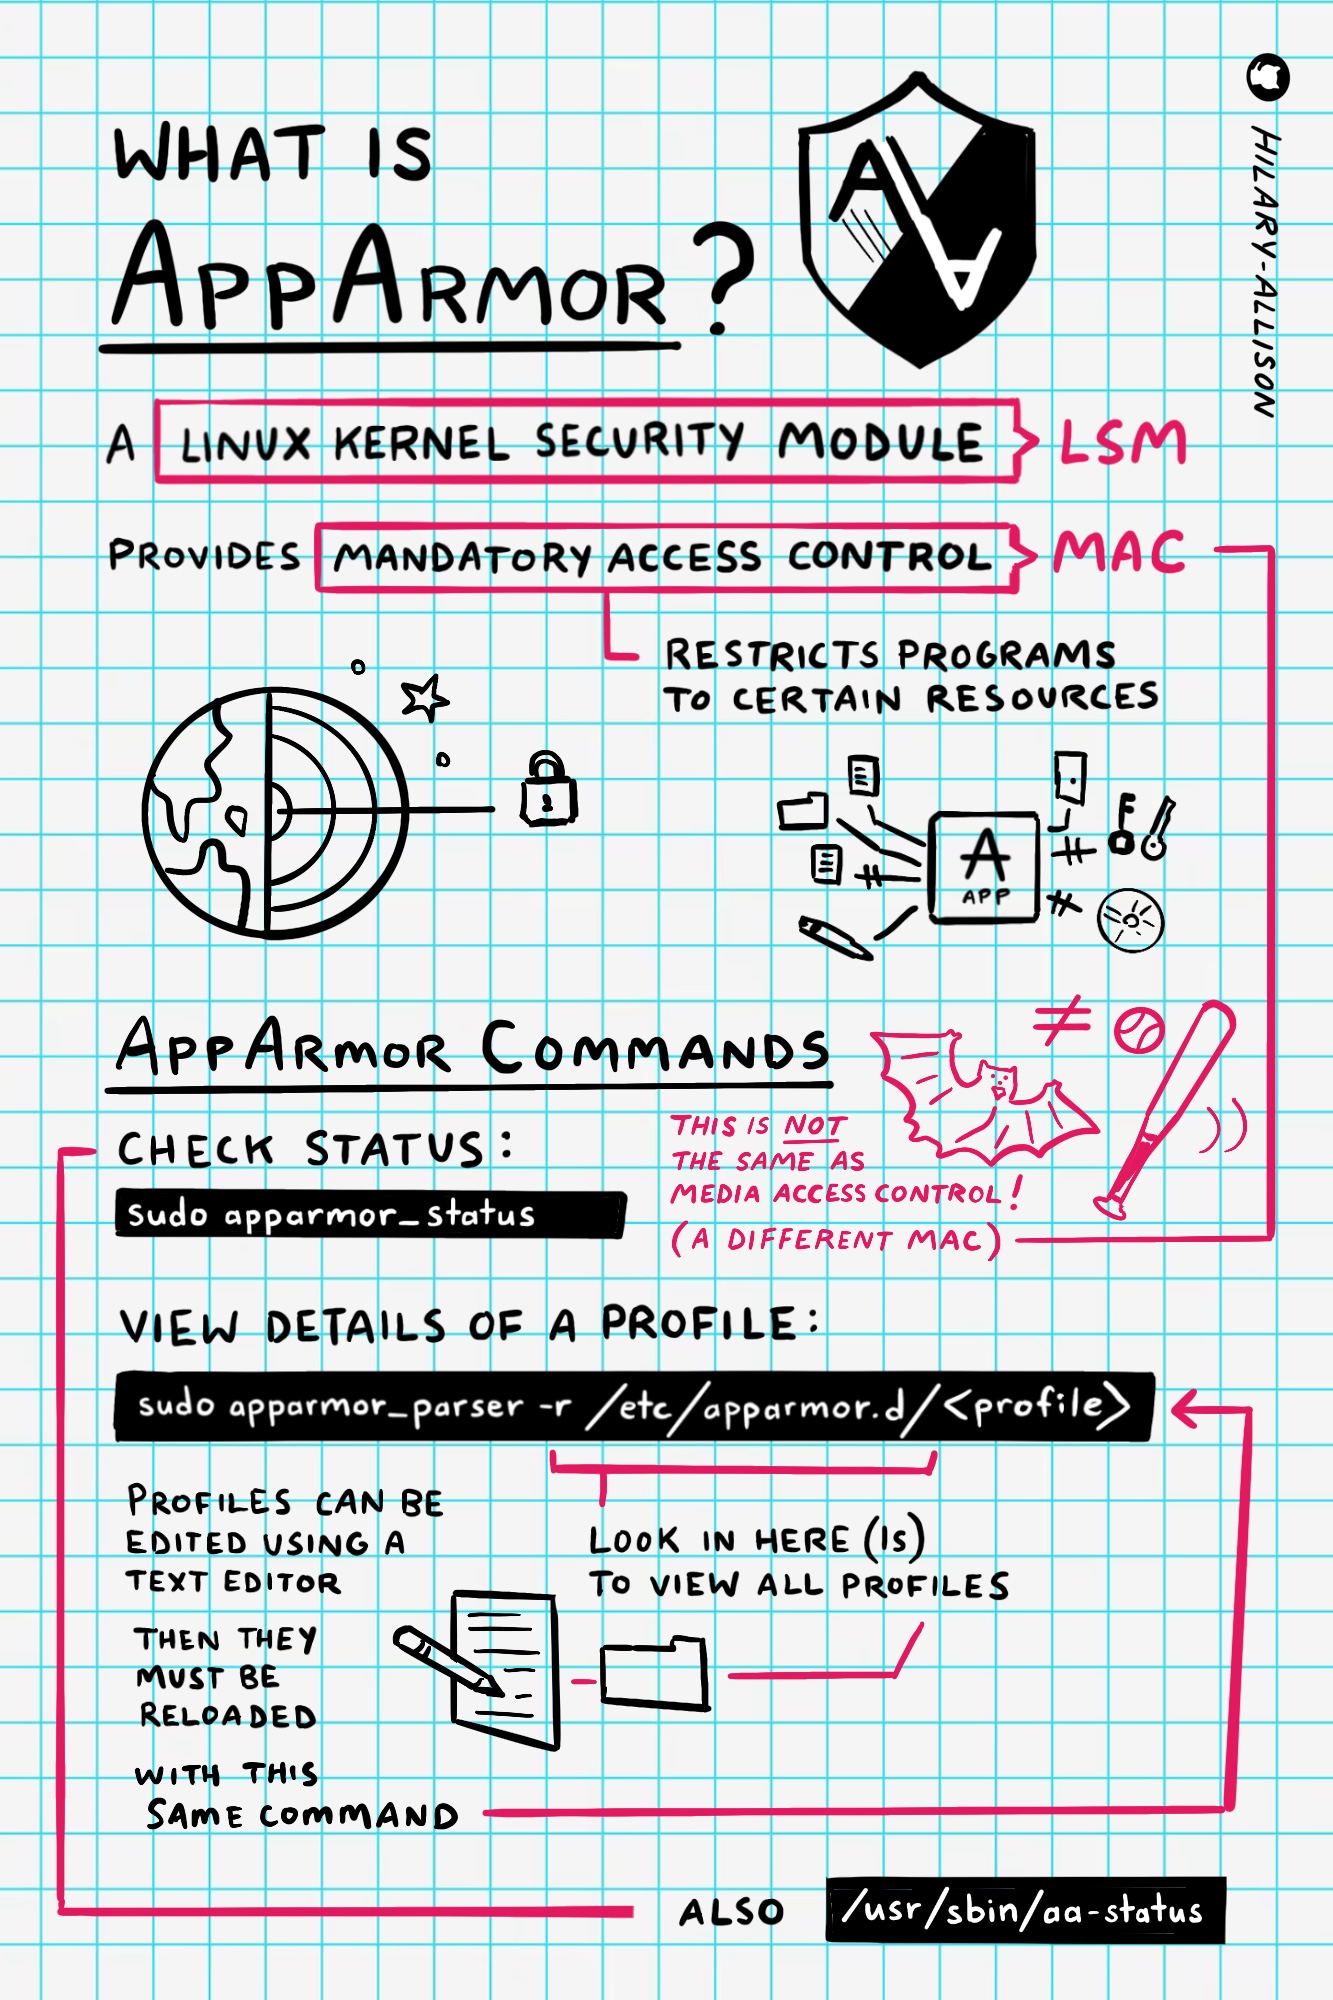 WHAT IS
APPARMOR?
HILARY-ALLISON
A LINUX KERNEL SECURITY MODULE LSM
PROVIDES MANDATORY ACCESS CONTROL MAC
RESTRICTS PROGRAMS
TO CERTAIN RESOURCES
A
APP
APPARMOR COMMANDS
THIS IS NOT
THE SAME AS
MEDIA ACCESS CONTROL!
(A DIFFERENT MAC)
CHECK STATUS:
sudo apparmor_status
VIEW DETAILS OF A PROFILE:
sudo apparmor_parser -r /etc/apparmor.d/<profile>
PROFILES CAN BE
EDITED USING A
TEXT EDITOR
THEN THEY
MUST BE
RELOADED
WITH THIS
SAME COMMAND
LOOK IN HERE (ls)
TO VIEW ALL PROFILES
ALSO /usr/sbin/aa-status